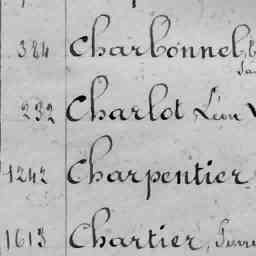 384 Charbonnel,
232 Charlot Léon
1242 Charpentier
1613 Chartier, Pierre